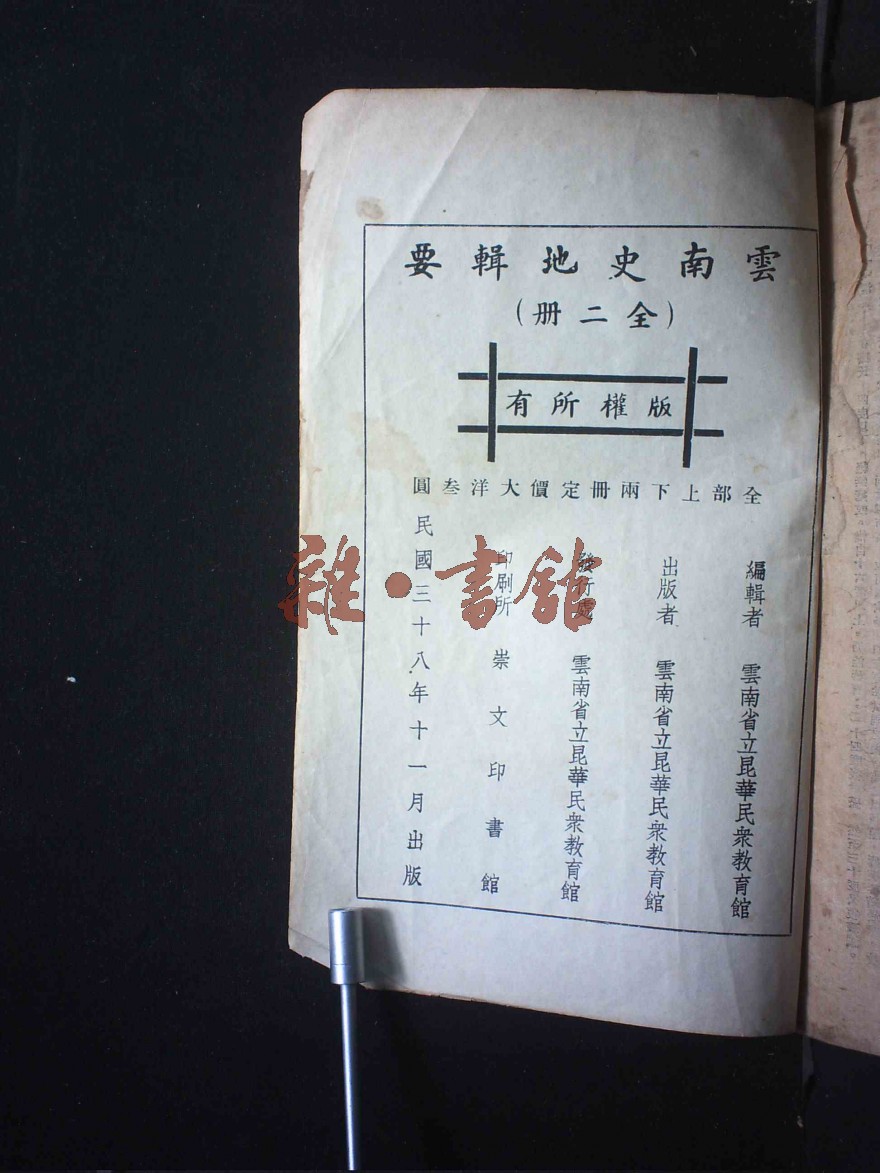 雲南史地輯要
(全二册)
版權所有
全部上下兩冊定價大洋叁圓
編輯者 雲南省立昆華民衆教育館
出版者 雲南省立昆華民衆教育館
發行處 雲南省立昆華民衆教育館
印刷所 崇文印書館
民國三十八年十一月出版
雜·書館